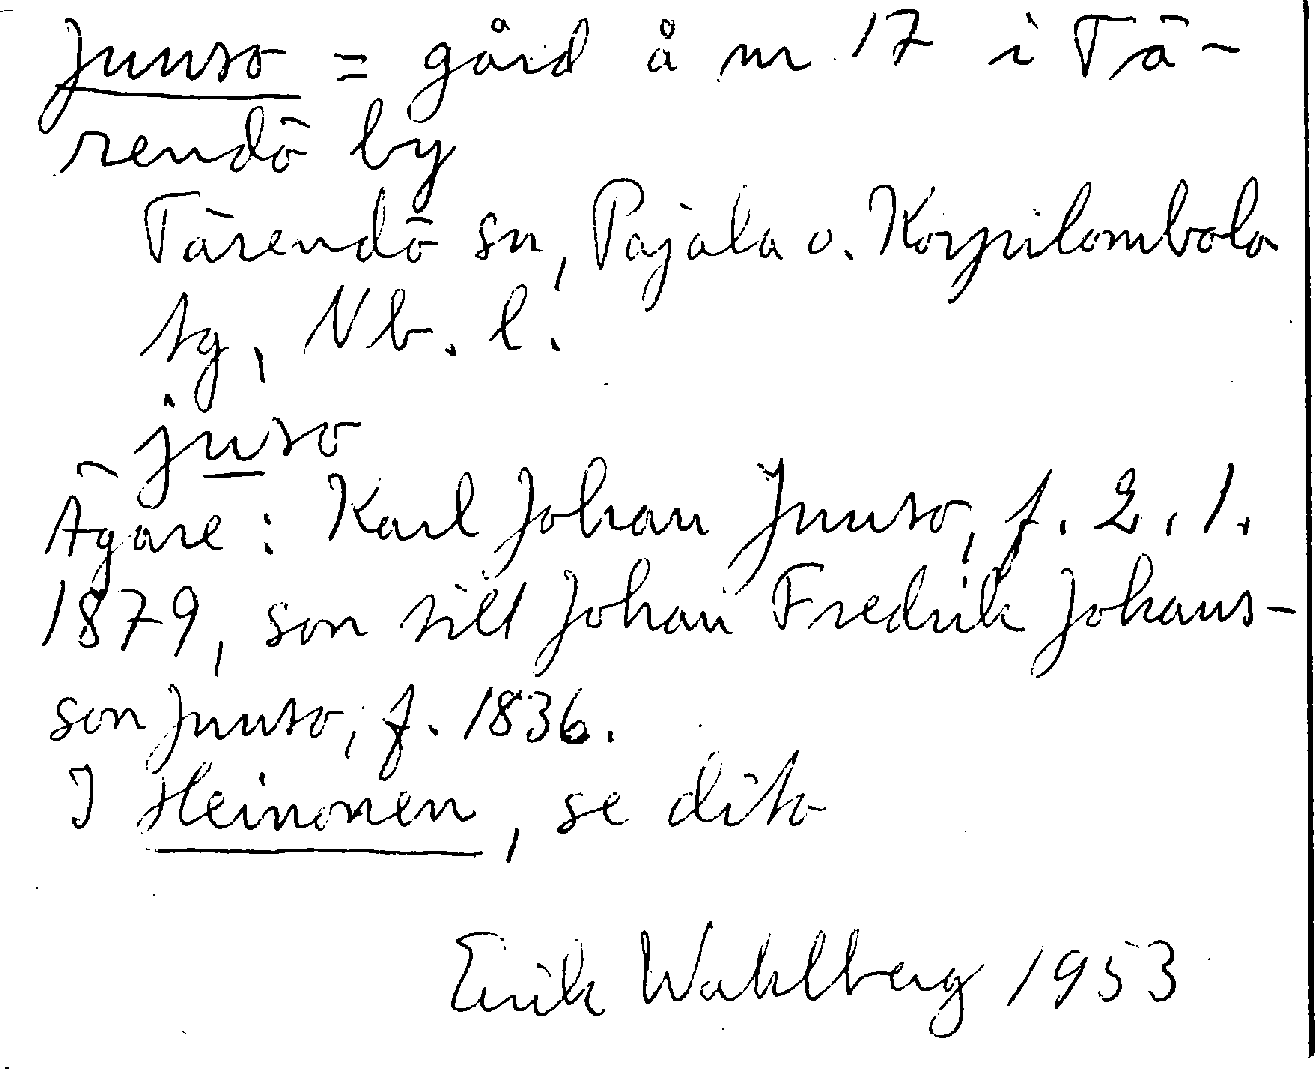 Juuso = gård å nr 17 i Tä-
rendö by
Tärendö sn, Pajala o. Korpilombolo
tg, Nb. l.
juso
Ägare: Karl Johan Juuso, f. 2.1.
1879, son till Johan Fredrik Johans-
son Juuso, f. 1836.
I Heinonen, se dito
Erik Wahlberg 1953